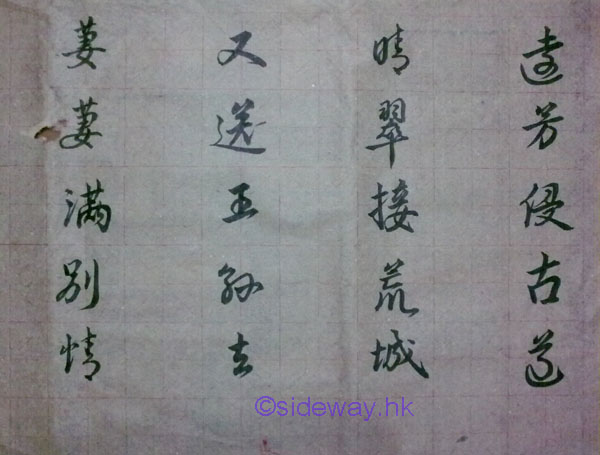 遠芳侵古道
晴翠接荒城
又送王孫去
萋萋滿別情
©sideway.hk